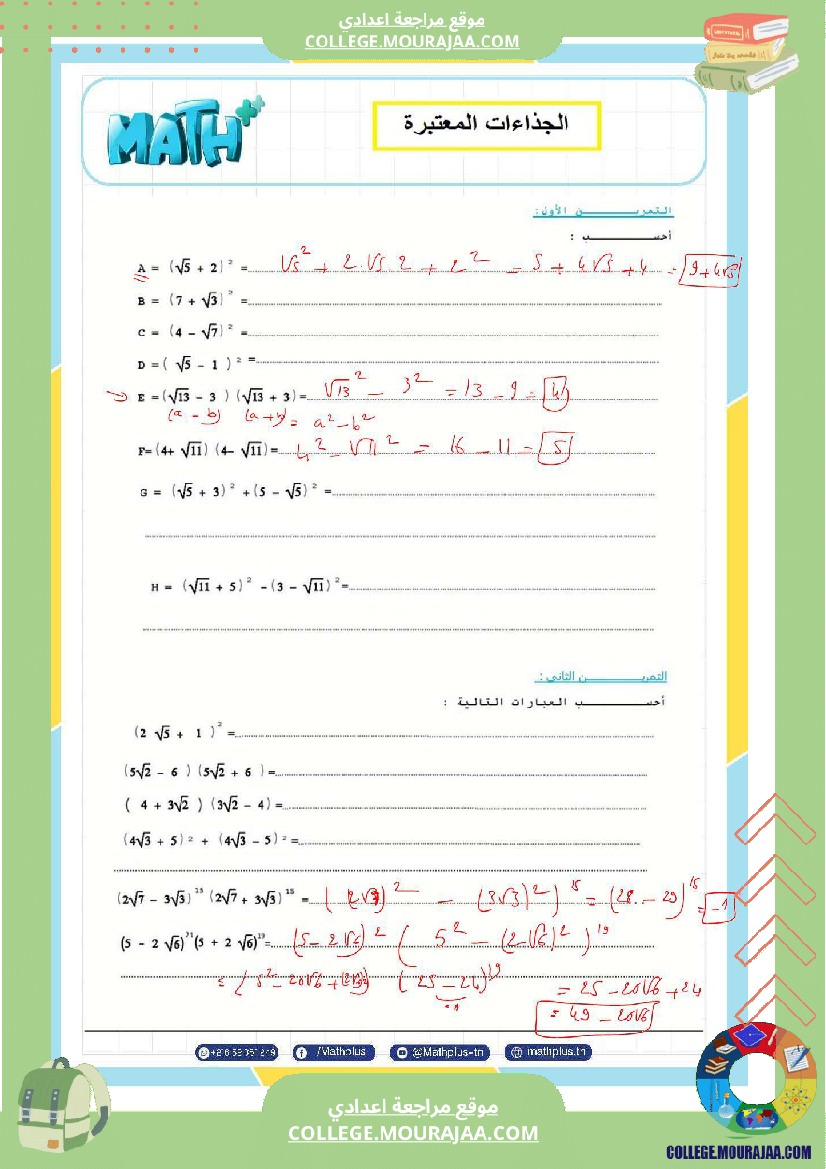 موقع مراجعة اعدادي
COLLEGE.MOURAJAA.COM
MATH
الجذاءات المعتبرة
التمريـــــن الأول:
أحســـــب :
A = (√5 + 2)² = √5² + 2·√5 2 + 2² = 5 + 4√5 + 4 = 9+4√5
B = (7 + √3)² =
C = (4 − √7)² =
D = ( √5 − 1 )² =
E = (√13 − 3 ) (√13 + 3) = √13² − 3² = 13 − 9 = 4
(a − b) (a + b) = a² − b²
F= (4+ √11) (4− √11) = 4² − √11² = 16 − 11 = 5
G = (√5 + 3)² + (5 − √5)² =
H = (√11 + 5)² − (3 − √11)² =
التمريـــــن الثاني :
أحســـــب العبارات التالية :
(2 √5 + 1 )² =
(5√2 − 6 ) (5√2 + 6 ) =
( 4 + 3√2 ) (3√2 − 4) =
(4√3 + 5)² + (4√3 − 5)² =
(2√7 − 3√3)¹⁵ (2√7 + 3√3)¹⁵ = ( (2√7)² − (3√3)² )¹⁵ = (28 − 29)¹⁵ = −1
(5 − 2 √6)²¹ (5 + 2 √6)¹⁹ = (5 − 2√6)² ( 5² − (2√6)² )¹⁹
= ( 5² − 20√6 + (2√6)²) (25 − 24)¹⁹ = 25 − 20√6 + 24
= 49 − 20√6
/Mathplus
@Mathplus-tn
mathplus.tn
موقع مراجعة اعدادي
COLLEGE.MOURAJAA.COM
COLLEGE.MOURAJAA.COM